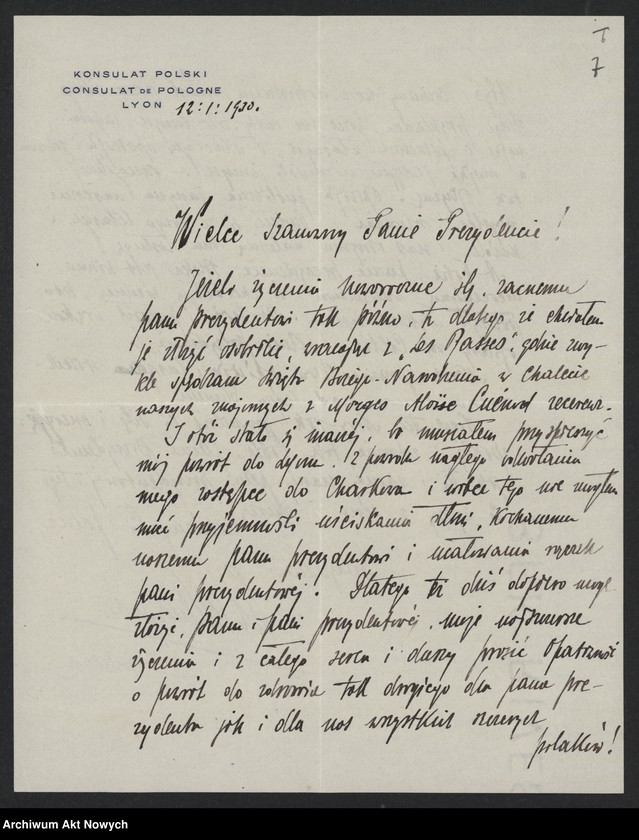 T
7
KONSULAT POLSKI
CONSULAT DE POLOGNE
LYON 12:I:1930.
Wielce Szanowny Panie Prezydencie!
Jeżeli życzenia noworoczne ślę, zacnemu
panu prezydentowi tak późno, to dlatego że chciałem
je złożyć osobiście, wracając z "Les Rasses", gdzie zwy-
kle spędzam święta Bożego-Narodzenia w chalecie
naszych znajomych z Morges Aloïse Cuénod
I otóż stało się inaczej, bo musiałem przyspieszyć
mój powrót do Lyonu z powodu nagłego odwołania
mego zastępcę do Charkowa i wobec tego nie mogłem
mieć przyjemności uściskania dłoni, Kochanemu
naszemu panu prezydentowi i ucałowania rączek
pani prezydentowéj. Dlatego też dziś dopiero mogę
złożyć, panu i pani prezydentowéj, moje najszczersze
życzenia i z całego serca i duszy prosić Opatrzność
o powrót do zdrowia tak drogiego dla pana pre-
zydenta jak i dla nas wszystkich szczerych
polaków!
Archiwum Akt Nowych